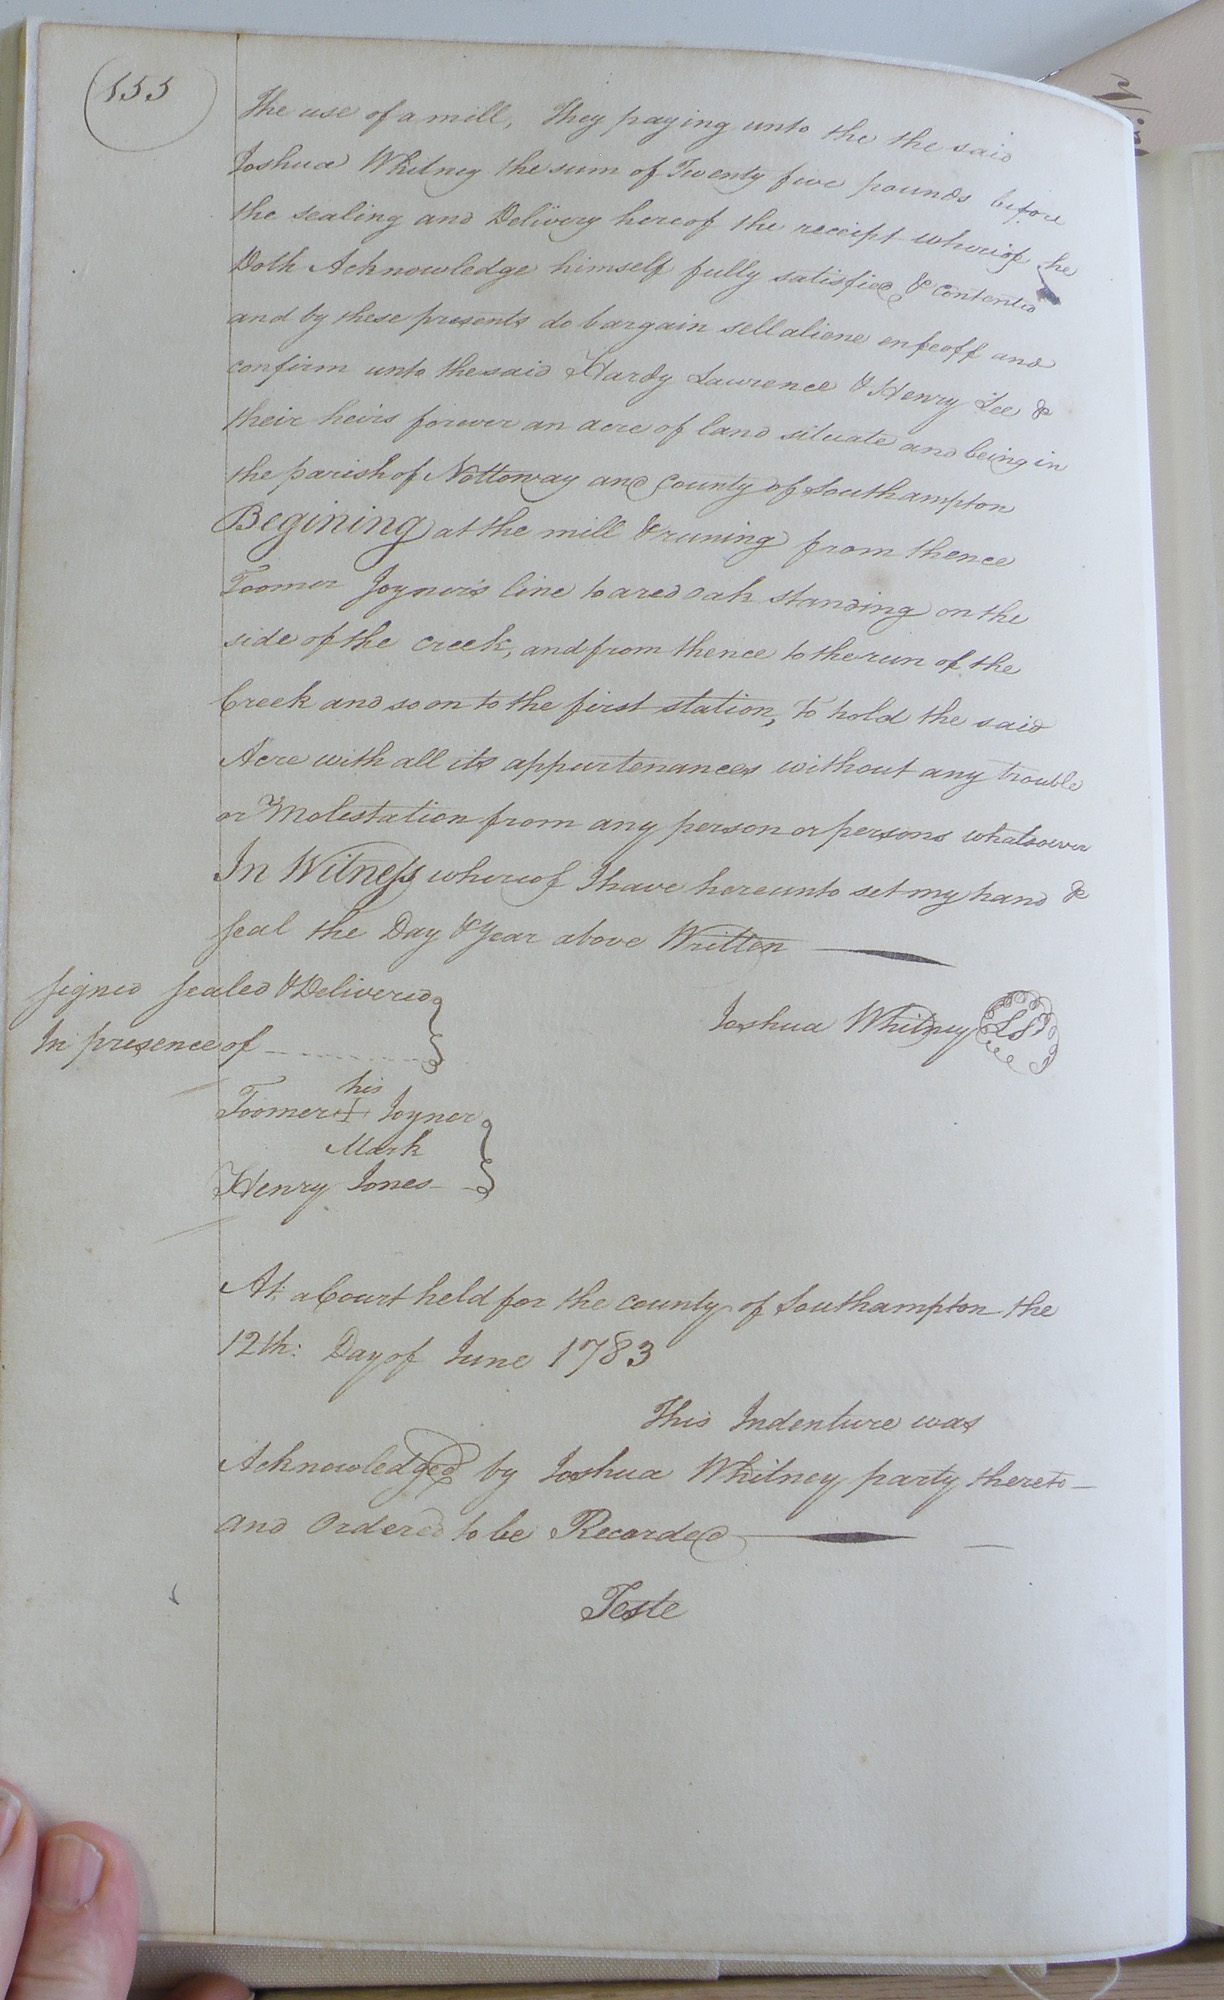 155
The use of a mill, They paying unto the the said
Joshua Whitney the sum of Twenty five pounds before
the sealing and Delivery hereof the receipt whereof he
Doth Acknowledge himself fully satisfied & contented
and by these presents do bargain sell aliene enfeoff and
confirm unto the said Hardy Lawrence & Henry Lee &
their heirs forever an acre of land situate and being in
the parish of Nottoway and County of Southampton
Begining at the mill & runing from thence
Toomer Joyner's line to a red oak standing on the
side of the creek, and from thence to the run of the
Creek and so on to the first station, To hold the said
Acre with all its appurtenances without any trouble
or Molestation from any person or persons whatsoever
In Witness whereof I have hereunto set my hand &
seal the Day & year above Written
Signed Sealed & Delivered
In presence of
Joshua Whitney LS
his
Toomer + Joyner
Mark
Henry Jones
At a Court held for the county of Southampton the
12th: Day of June 1783
This Indenture was
Acknowledged by Joshua Whitney party thereto
and Ordered to be Recorded
Teste